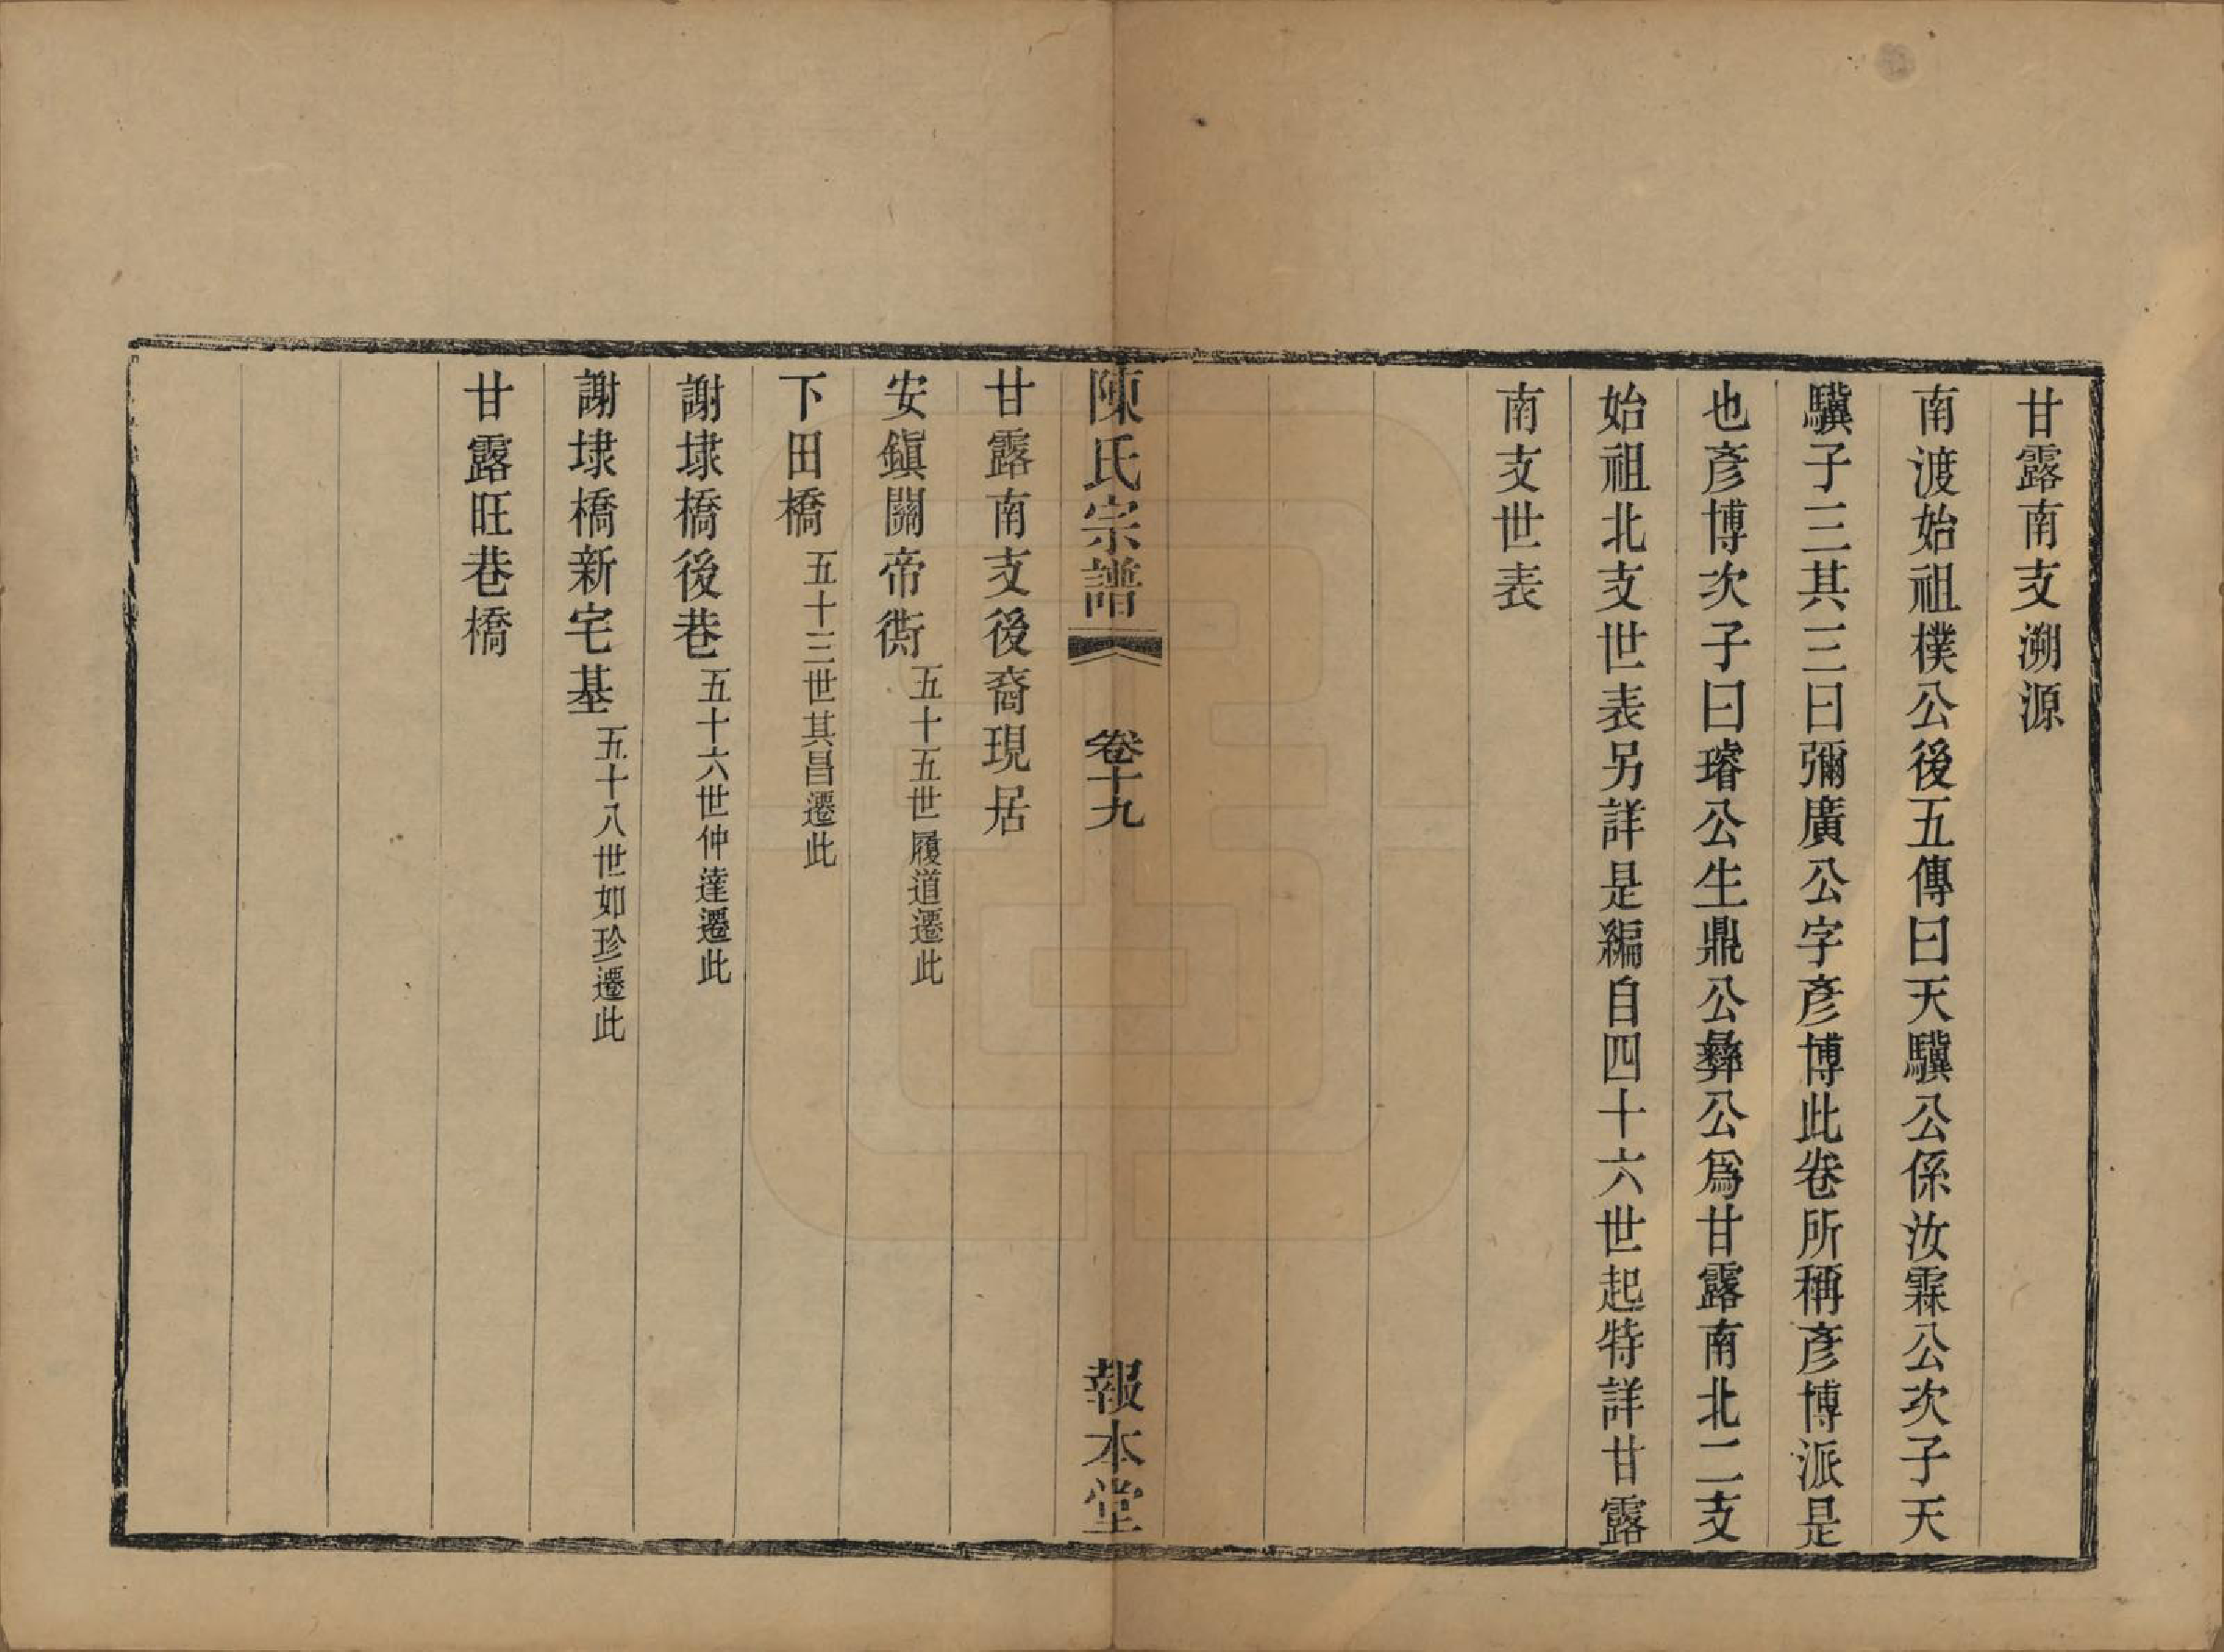 甘露南支溯源
南渡始祖樸公後五傳曰天驥公係汝霖公次子天
驥子三其三曰彌廣公字彥博此卷所稱彥博派是
也彥博次子曰璿公生鼎公彝公爲甘露南北二支
始祖北支世表另詳是編自四十六世起特詳甘露
南支世表
陳氏宗譜 卷十九 報本堂
甘露南支後裔現居
安鎭關帝衖 五十五世履道遷此
下田橋 五十三世其昌遷此
謝埭橋後巷 五十六世仲達遷此
謝埭橋新宅基 五十八世如珍遷此
甘露旺巷橋